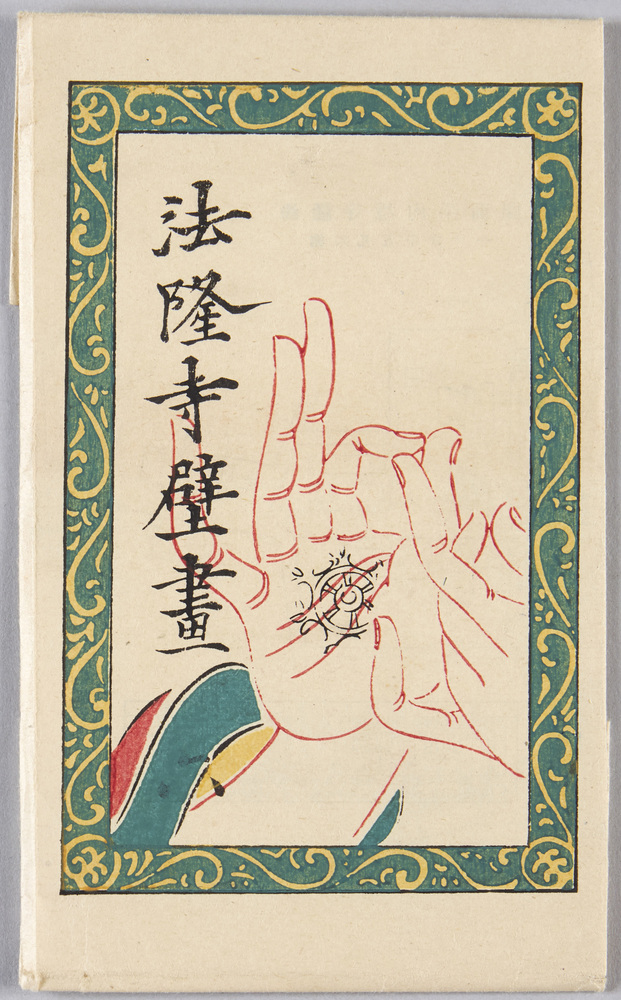 法隆寺壁畫
六